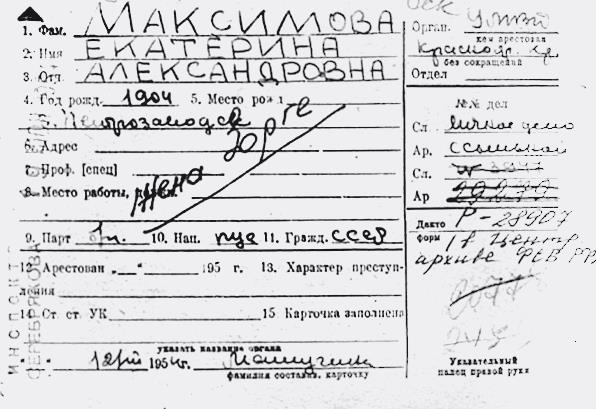 1. Фам. МАКСИМОВА
2. Имя ЕКАТЕРИНА
3. Отч. АЛЕКСАНДРОВНА
4. Год рожд. 1904 5. Место рожд.
г. Петрозаводск
6. Адрес
7. Проф. [спец]
8. Место работы,
Жена Зорге
9. Парт б/п. 10. Нац. рус 11. Гражд. СССР
12. Арестован „ “ 195 г. 13. Характер преступ-
ления
14. Ст. ст. УК 15. Карточка заполнена
указать название органа
195 г.
фамилия составив. карточку
Орган. УНКВД
кем арестован
Краснояр. кр.
без сокращений
Отдел
№№ дел
Сл. Личное дело
Ар. ссыльной
Сл.
Ар
Дакто Р-28907
форм 1 в Центр
архиве ФСБ РФ
Указательный
палец правой руки
ИНСПЕКТ
СЕРЕБРЯКОВА